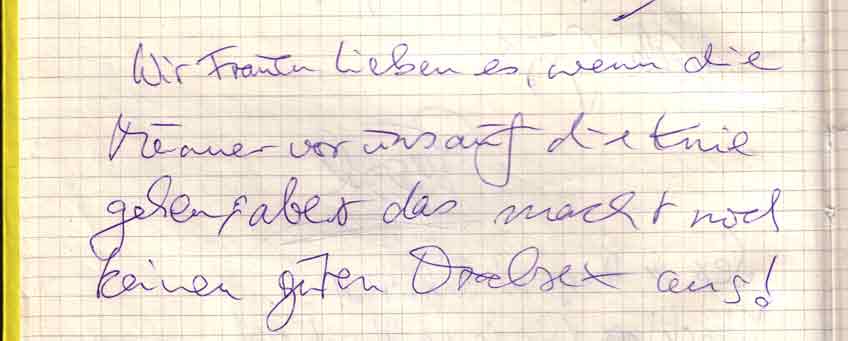 Wir Frauen lieben es, wenn die
Männer vor uns auf die Knie
gehen, aber das macht noch
keinen guten Oralsex aus!